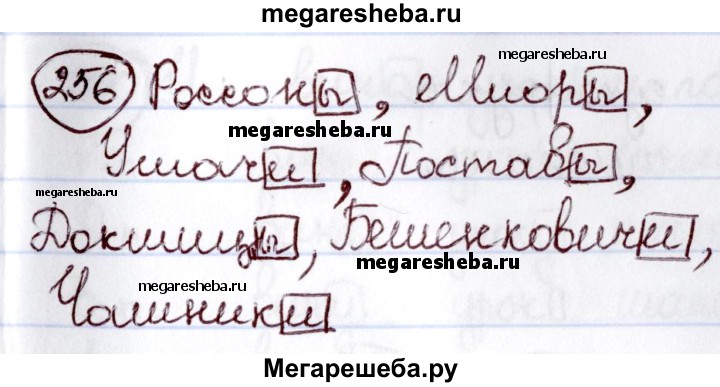 megaresheba.ru
256 Россоны, Миоры,
megaresheba.ru
megaresheba.ru
Ушачи, Поставы,
megaresheba.ru
Докшицы, Бешенковичи,
megaresheba.ru
megaresheba.ru
Чашники
Мегарешеба.ру